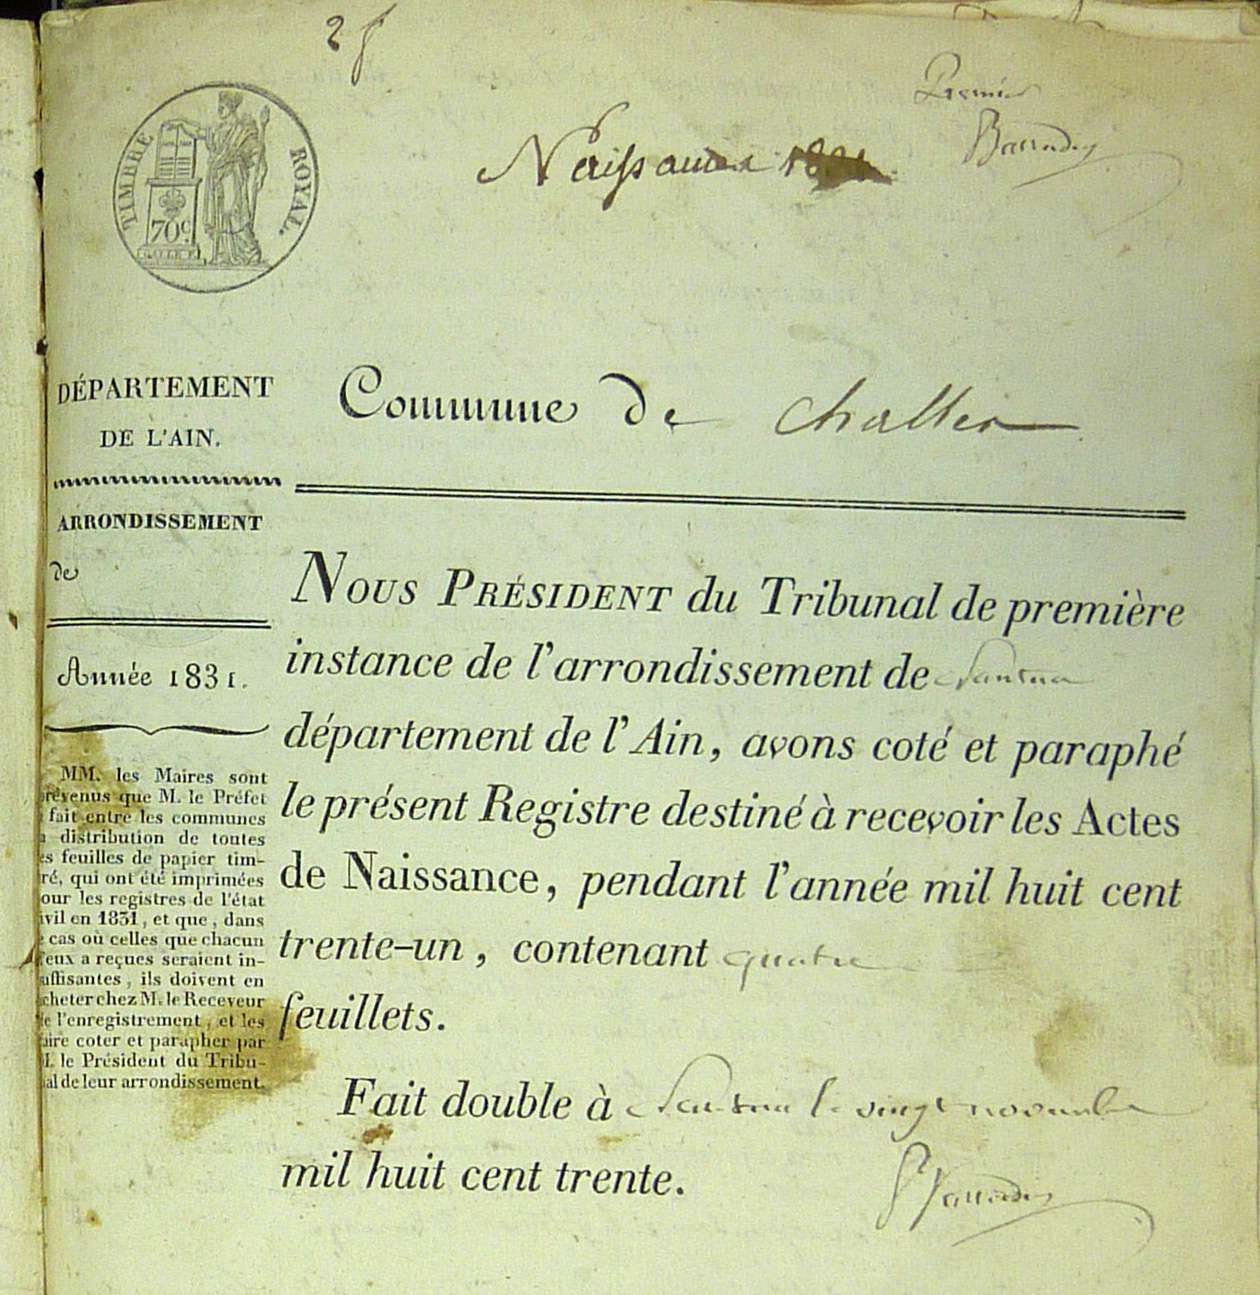 Premier
Naissances 1831
TIMBRE ROYAL.
70c.
DÉPARTEMENT
DE L'AIN.
Commune de Challes
ARRONDISSEMENT
de
Année 1831.
MM. les Maires sont
prévenus que M. le Préfet
fait entre les communes
distribution de toutes
es feuilles de papier tim-
ré, qui ont été imprimées
our les registres de l'état
ivil en 1831, et que, dans
cas où celles que chacun
d'eux a reçues seraient in-
uffisantes, ils doivent en
cheter chez M. le Receveur
e l'enregistrement, et les
aire coter et parapher par
M. le Président du Tribu-
al de leur arrondissement.
NOUS PRÉSIDENT du Tribunal de première
instance de l'arrondissement de Nantua
département de l'Ain, avons coté et paraphé
le présent Registre destiné à recevoir les Actes
de Naissance, pendant l'année mil huit cent
trente-un, contenant quatre
feuillets.
Fait double à Nantua le vingt novembre
mil huit cent trente.